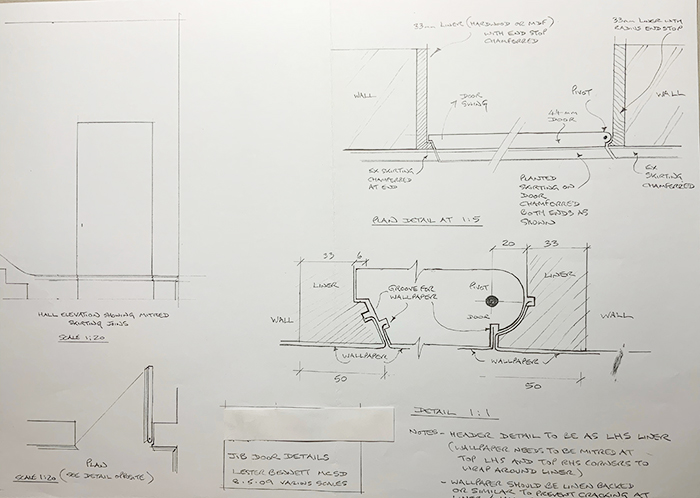 33mm LINER (HARDWOOD OR MDF)
WITH END STOP
CHAMFERRED
33mm LINER WITH
RADIUS END STOP
WALL
DOOR
SWING
PIVOT
44mm
DOOR
WALL
EX SKIRTING
CHAMFERRED
AT END
PLANTED
SKIRTING ON
DOOR
CHAMFERRED
BOTH ENDS AS
SHOWN
EX
SKIRTING
CHAMFERRED
PLAN DETAIL AT 1:5
33
6
20
33
LINER
GROOVE FOR
WALLPAPER
PIVOT
LINER
WALL
DOOR
WALL
WALLPAPER
WALLPAPER
50
50
DETAIL 1:1
HALL ELEVATION SHOWING MITRED
SKIRTING JOINS
SCALE 1:20
PLAN
SCALE 1:20 (SEE DETAIL OPPOSITE)
JIB DOOR DETAILS
LESTER BENNETT MCSD
8.5.09 VARIOUS SCALES
NOTES - HEADER DETAIL TO BE AS LHS LINER
(WALLPAPER NEEDS TO BE MITRED AT
TOP LHS AND TOP RHS CORNERS TO
WRAP AROUND LINER)
- WALLPAPER SHOULD BE LINEN BACKED
OR SIMILAR TO PREVENT CRACKING AT